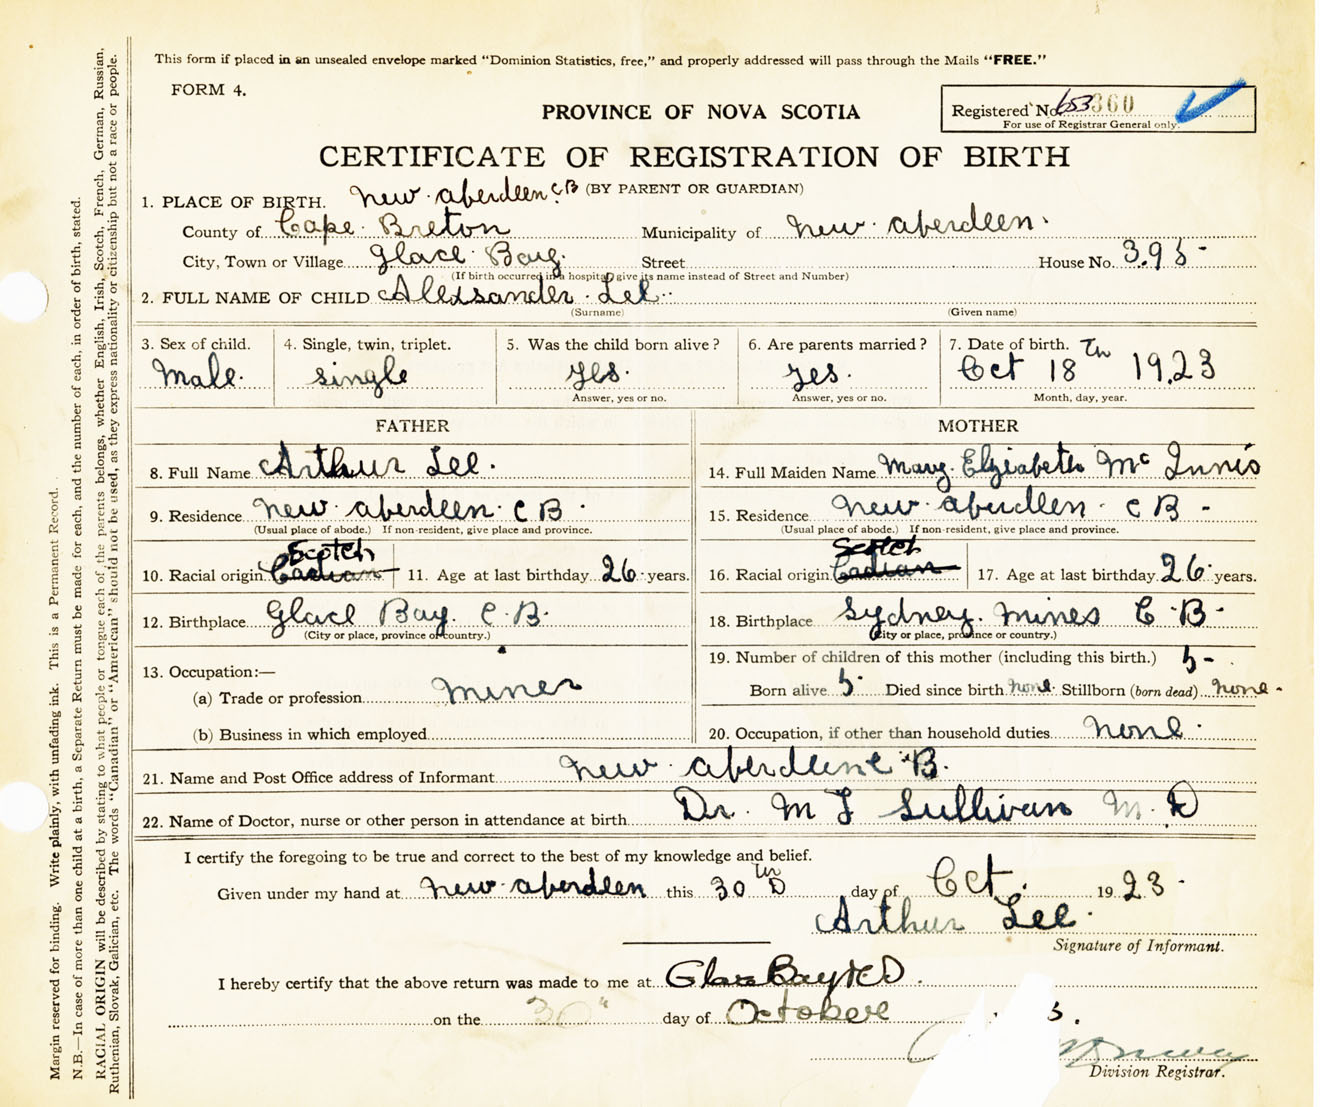 This form if placed in an unsealed envelope marked “Dominion Statistics, free,” and properly addressed will pass through the Mails “FREE.”
FORM 4.
PROVINCE OF NOVA SCOTIA
Registered No. 653360
For use of Registrar General only.
CERTIFICATE OF REGISTRATION OF BIRTH
(BY PARENT OR GUARDIAN)
1. PLACE OF BIRTH. New aberdeen C B
County of Cape Breton Municipality of New aberdeen.
City, Town or Village Glace Bay. Street House No. 395 -
(If birth occurred in a hospital give its name instead of Street and Number)
2. FULL NAME OF CHILD Alexsander Lee
(Surname) (Given name)
3. Sex of child. 4. Single, twin, triplet. 5. Was the child born alive? 6. Are parents married? 7. Date of birth.
Male. single yes. yes. Oct 18th 1923
Answer, yes or no. Answer, yes or no. Month, day, year.
FATHER MOTHER
8. Full Name Arthur Lee. 14. Full Maiden Name Mary Elziabeth Mc Innis
9. Residence New aberdeen. C B. 15. Residence New aberdeen. C B -
(Usual place of abode.) If non-resident, give place and province. (Usual place of abode.) If non-resident, give place and province.
Scotch Scotch
10. Racial origin 11. Age at last birthday 26 years. 16. Racial origin 17. Age at last birthday 26 years.
12. Birthplace Glace Bay. C. B. 18. Birthplace Sydney mines C. B -
(City or place, province or country.) (City or place, province or country.)
13. Occupation:— 19. Number of children of this mother (including this birth.) 5 -
(a) Trade or profession miner Born alive 5. Died since birth none. Stillborn (born dead) none -
(b) Business in which employed 20. Occupation, if other than household duties none.
21. Name and Post Office address of Informant New aberdeene B.
22. Name of Doctor, nurse or other person in attendance at birth Dr. M J Sullivan M. D
I certify the foregoing to be true and correct to the best of my knowledge and belief.
Given under my hand at New aberdeen this 30th day of Oct. 1923 -
Arthur Lee.
Signature of Informant.
I hereby certify that the above return was made to me at Glace Bay
on the 30" day of October 3.
Division Registrar.
Margin reserved for binding. Write plainly, with unfading ink. This is a Permanent Record.
N.B.—In case of more than one child at a birth, a Separate Return must be made for each, and the number of each, in order of birth, stated.
RACIAL ORIGIN will be described by stating to what people or tongue each of the parents belongs, whether English, Irish, Scotch, French, German, Russian,
Ruthenian, Slovak, Galician, etc. The words “Canadian” or “American” should not be used, as they express nationality or citizenship but not a race or people.